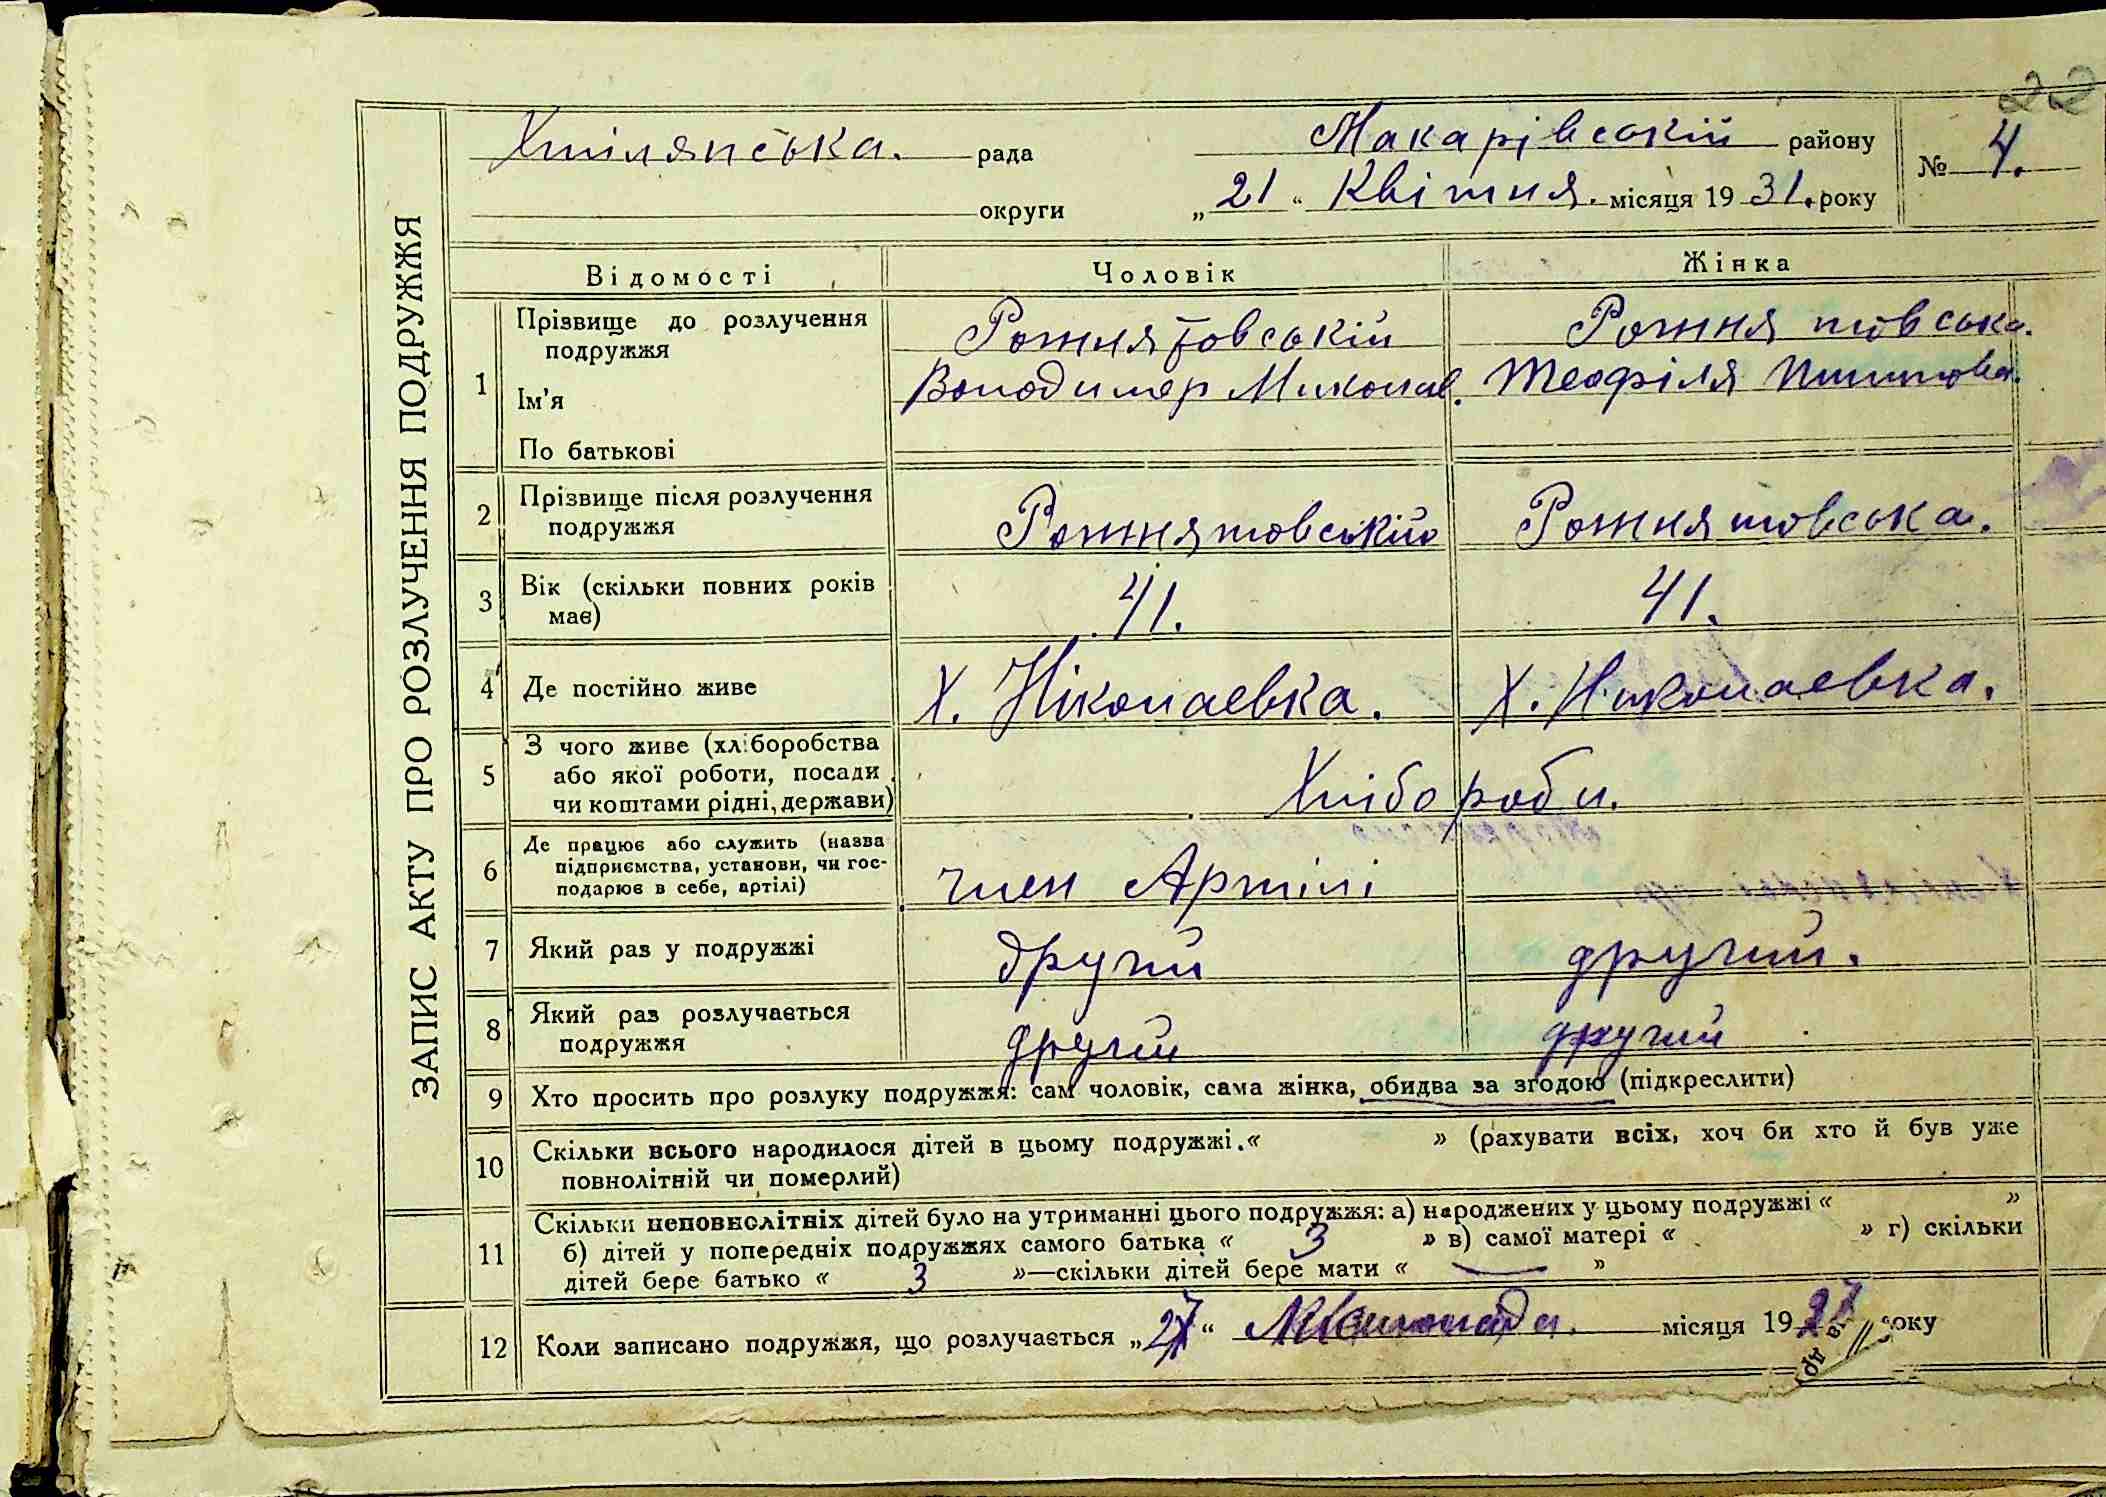 22
Хмілянська. рада Макарівській району № 4.
округи „21“ Квітня. місяця 1931. року
ЗАПИС АКТУ ПРО РОЗЛУЧЕННЯ ПОДРУЖЖЯ
Відомості Чоловік Жінка
1 Прізвище до розлучення Рожнятовській Рожнятовська.
подружжя
Ім'я Володимер Миколав. Теофіля
По батькові
2 Прізвище після розлучення Рожнятовській Рожнятовська.
подружжя
3 Вік (скільки повних років 41. 41.
має)
4 Де постійно живе Х. Ніколаевка. Х. Николаевка.
5 З чого живе (хліборобства
або якої роботи, посади Хлібороби.
чи коштами рідні, держави)
6 Де працює або служить (назва
підприємства, установи, чи гос- член Артілі
подарює в себе, артілі)
7 Який раз у подружжі другий другий.
8 Який раз розлучається другий другий
подружжя
9 Хто просить про розлуку подружжя: сам чоловік, сама жінка, обидва за згодою (підкреслити)
10 Скільки всього народилося дітей в цьому подружжі. « » (рахувати всіх, хоч би хто й був уже
повнолітній чи померлий)
11 Скільки неповнолітніх дітей було на утриманні цього подружжя: а) народжених у цьому подружжі « »
б) дітей у попередніх подружжях самого батька « 3 » в) самої матері « » г) скільки
дітей бере батько « 3 »—скільки дітей бере мати « — »
12 Коли записано подружжя, що розлучається „27“ місяця 19 року